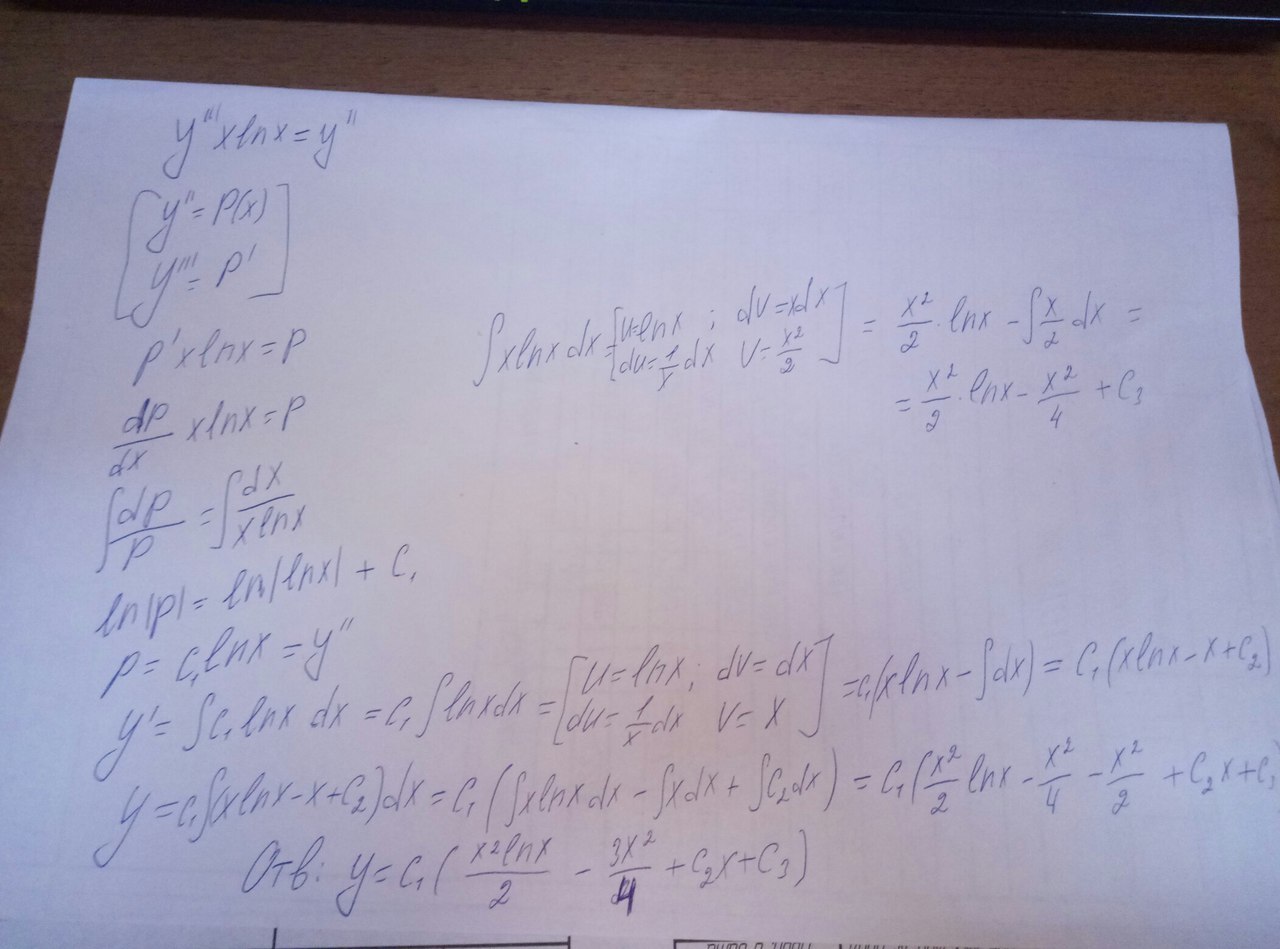 y'''xlnx=y''
[y''=P(x)
y'''=P']
P'xlnx=P
dP/dx xlnx=P
∫dP/P=∫dx/xlnx
ln|P|=ln|lnx|+C₁
P=C₁lnx=y''
∫xlnxdx=[u=lnx; dv=xdx
du=1/x dx v=x²/2]=x²/2·lnx-∫x/2dx=
=x²/2·lnx-x²/4+C₃
y'=∫C₁lnxdx=C₁∫lnxdx=[u=lnx; dv=dx
du=1/x dx v=x]=C₁(xlnx-∫dx)=C₁(xlnx-x+C₂)
y=C₁∫(xlnx-x+C₂)dx=C₁(∫xlnxdx-∫xdx+∫C₂dx)=C₁(x²/2 lnx-x²/4-x²/2+C₂x+C₃
Отв: y=C₁(x²lnx/2-3x²/4+C₂x+C₃)